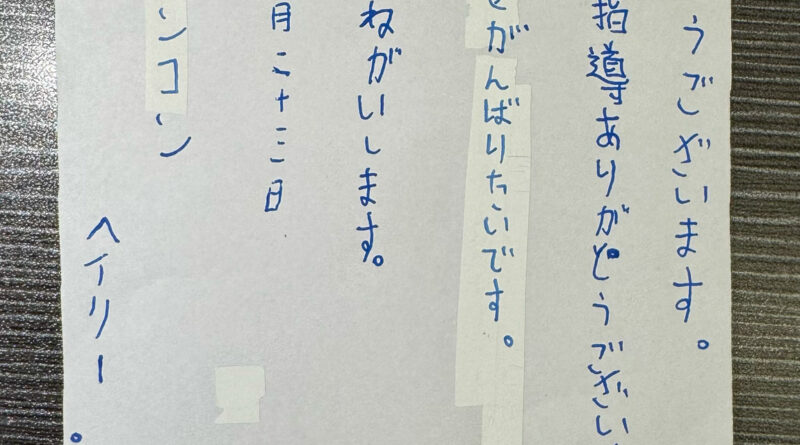 うございます。
指導ありがどうござい
がんばりたいです。
ねがいします。
月二十三日
ンコン
ヘイリー
。